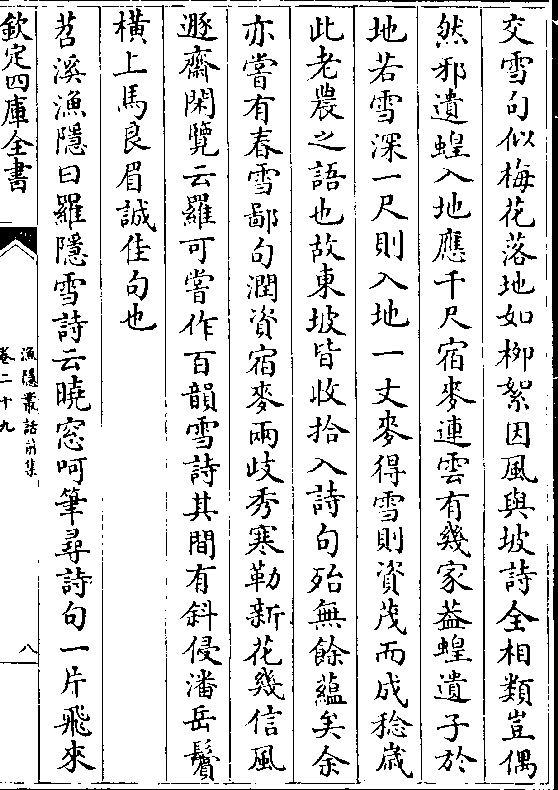 交雪句似梅花落地如栁絮因風與坡詩全相類豈偶
然邪遺蝗入地應千尺宿麥連雲有幾家葢蝗遺子於
地若雪深一尺則入地一丈麥得雪則資茂而成稔嵗
此老農之語也故東坡皆收拾入詩句殆無餘藴矣余
亦嘗有春雪鄙句潤資宿麥兩歧秀寒勒新花幾信風
遯齋閑覽云羅可嘗作百韻雪詩其間有斜侵潘岳鬢
橫上馬良眉誠佳句也
苕溪漁隱曰羅隱雪詩云曉窓呵筆尋詩句一片飛來
欽定四庫全書
漁隱叢話前集
卷二十九
八